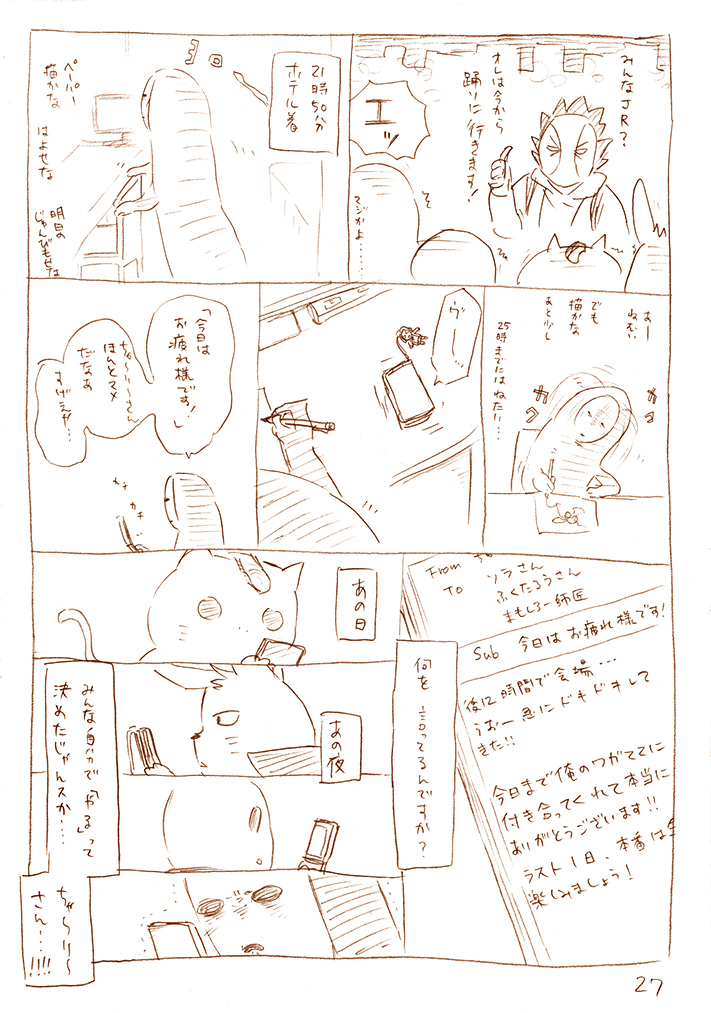 みんなJR?
オレは今から
踊りに行きます!
エッ
マジかよ……
21時50分
ホテル着
ペーパー
描かな
はよせな
明日の
じゅんびもせな
あー
ねむい
でも
描かな
あと少し
25時までにはねたい…
カク
カク
ヴーッ
「今日は
お疲れ様です!」
ちゃ〜り〜さん
ほんとマメ
だなあ
すげえや…
カチ
カチ
From
To ソラさん
ふくたろうさん
まもしろー師匠
Sub 今日はお疲れ様です!
後12時間で会場…
うおー急にドキドキして
きた!!
今日まで俺のワガママに
付き合ってくれて本当に
ありがとうございます!!
ラスト1日、本番は全
楽しみましょう!
あの日
何を言ってるんですか?
あの夜
みんな自分で「やる」って
決めたじゃんスか…
ちゃ〜り〜
さん…!!!!
27